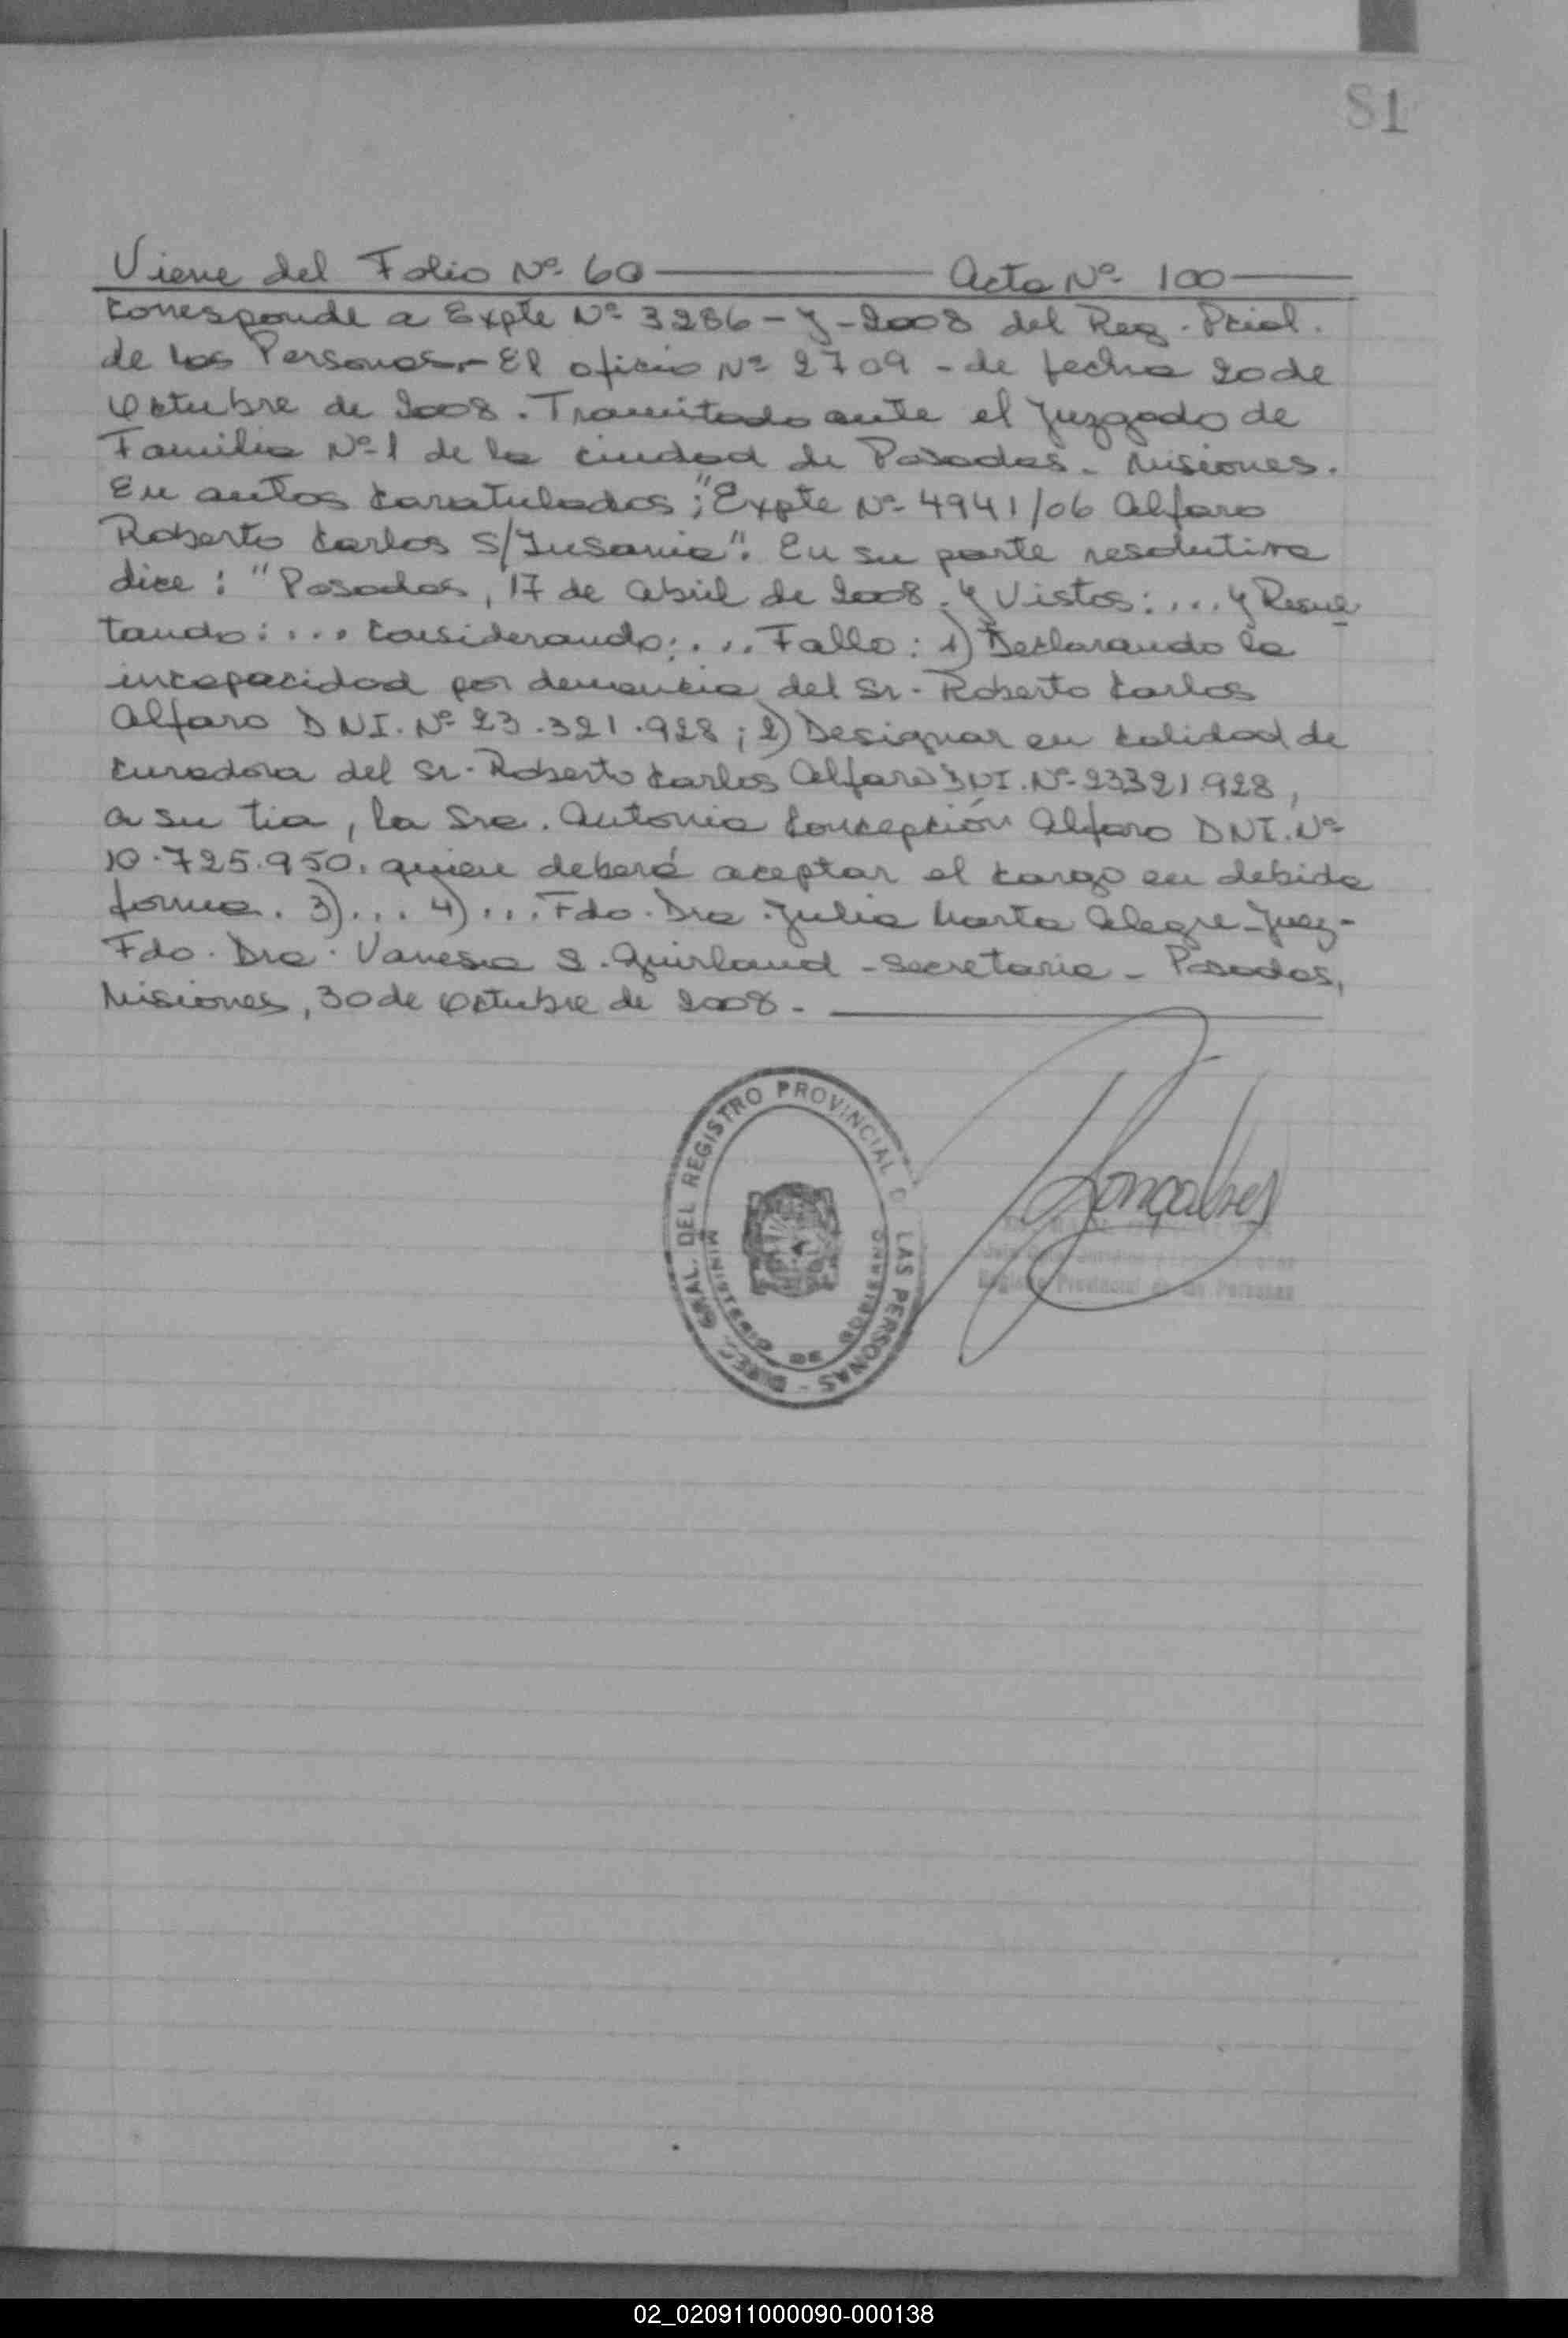 81
Viene del Folio Nº 60 Acta Nº 100
Corresponde a Expte Nº 3286-J-2008 del Reg. Pcial.
de las Personas.- El oficio Nº 2709 - de fecha 20 de
Octubre de 2008. Tramitado ante el Juzgado de
Familia Nº 1 de la ciudad de Posadas - Misiones.
En autos caratulados; "Expte Nº 4941/06 Alfaro
Roberto Carlos S/Insania". En su parte resolutiva
dice: "Posadas, 17 de Abril de 2008. Y Vistos: ... Y Resul
tando: ... Considerando: ... Fallo: 1) Declarando la
incapacidad por demencia del Sr. Roberto Carlos
Alfaro DNI. Nº 23.321.928; 2) Designar en calidad de
curadora del Sr. Roberto Carlos Alfaro DNI. Nº 23321.928,
a su tia, la Sra. Antonia Concepción Alfaro DNI. Nº
10.725.950. quien deberá aceptar el cargo en debida
forma. 3)... 4)... Fdo. Dra. Julia Marta Alegre - Juez -
Fdo. Dra. Vanesa S. Guirland - Secretaria - Posadas,
Misiones, 30 de Octubre de 2008.-
DIREC. GRAL. DEL REGISTRO PROVINCIAL D LAS PERSONAS -
MINISTERIO DE GOBIERNO
Gonçalves
Registro Provincial de las Personas
02_020911000090-000138